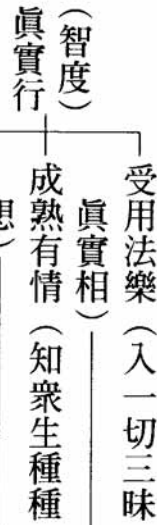 受用法樂（入一切三昧
眞實相）
成熟有情（知衆生種種
想）
（智度）
眞實行